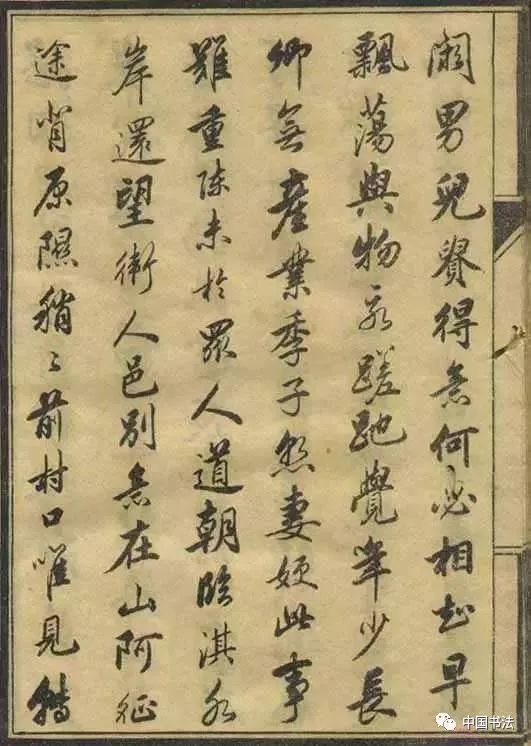 闊男兒貴得意何必相知早
飄蕩與物永蹉跎覺年老長
卿無產業季子慙妻嫂此事
難重陳未於眾人道朝臨淇水
岸還望衛人邑別意在山阿征
途背原隰稍〻前村口唯見轉
中国书法